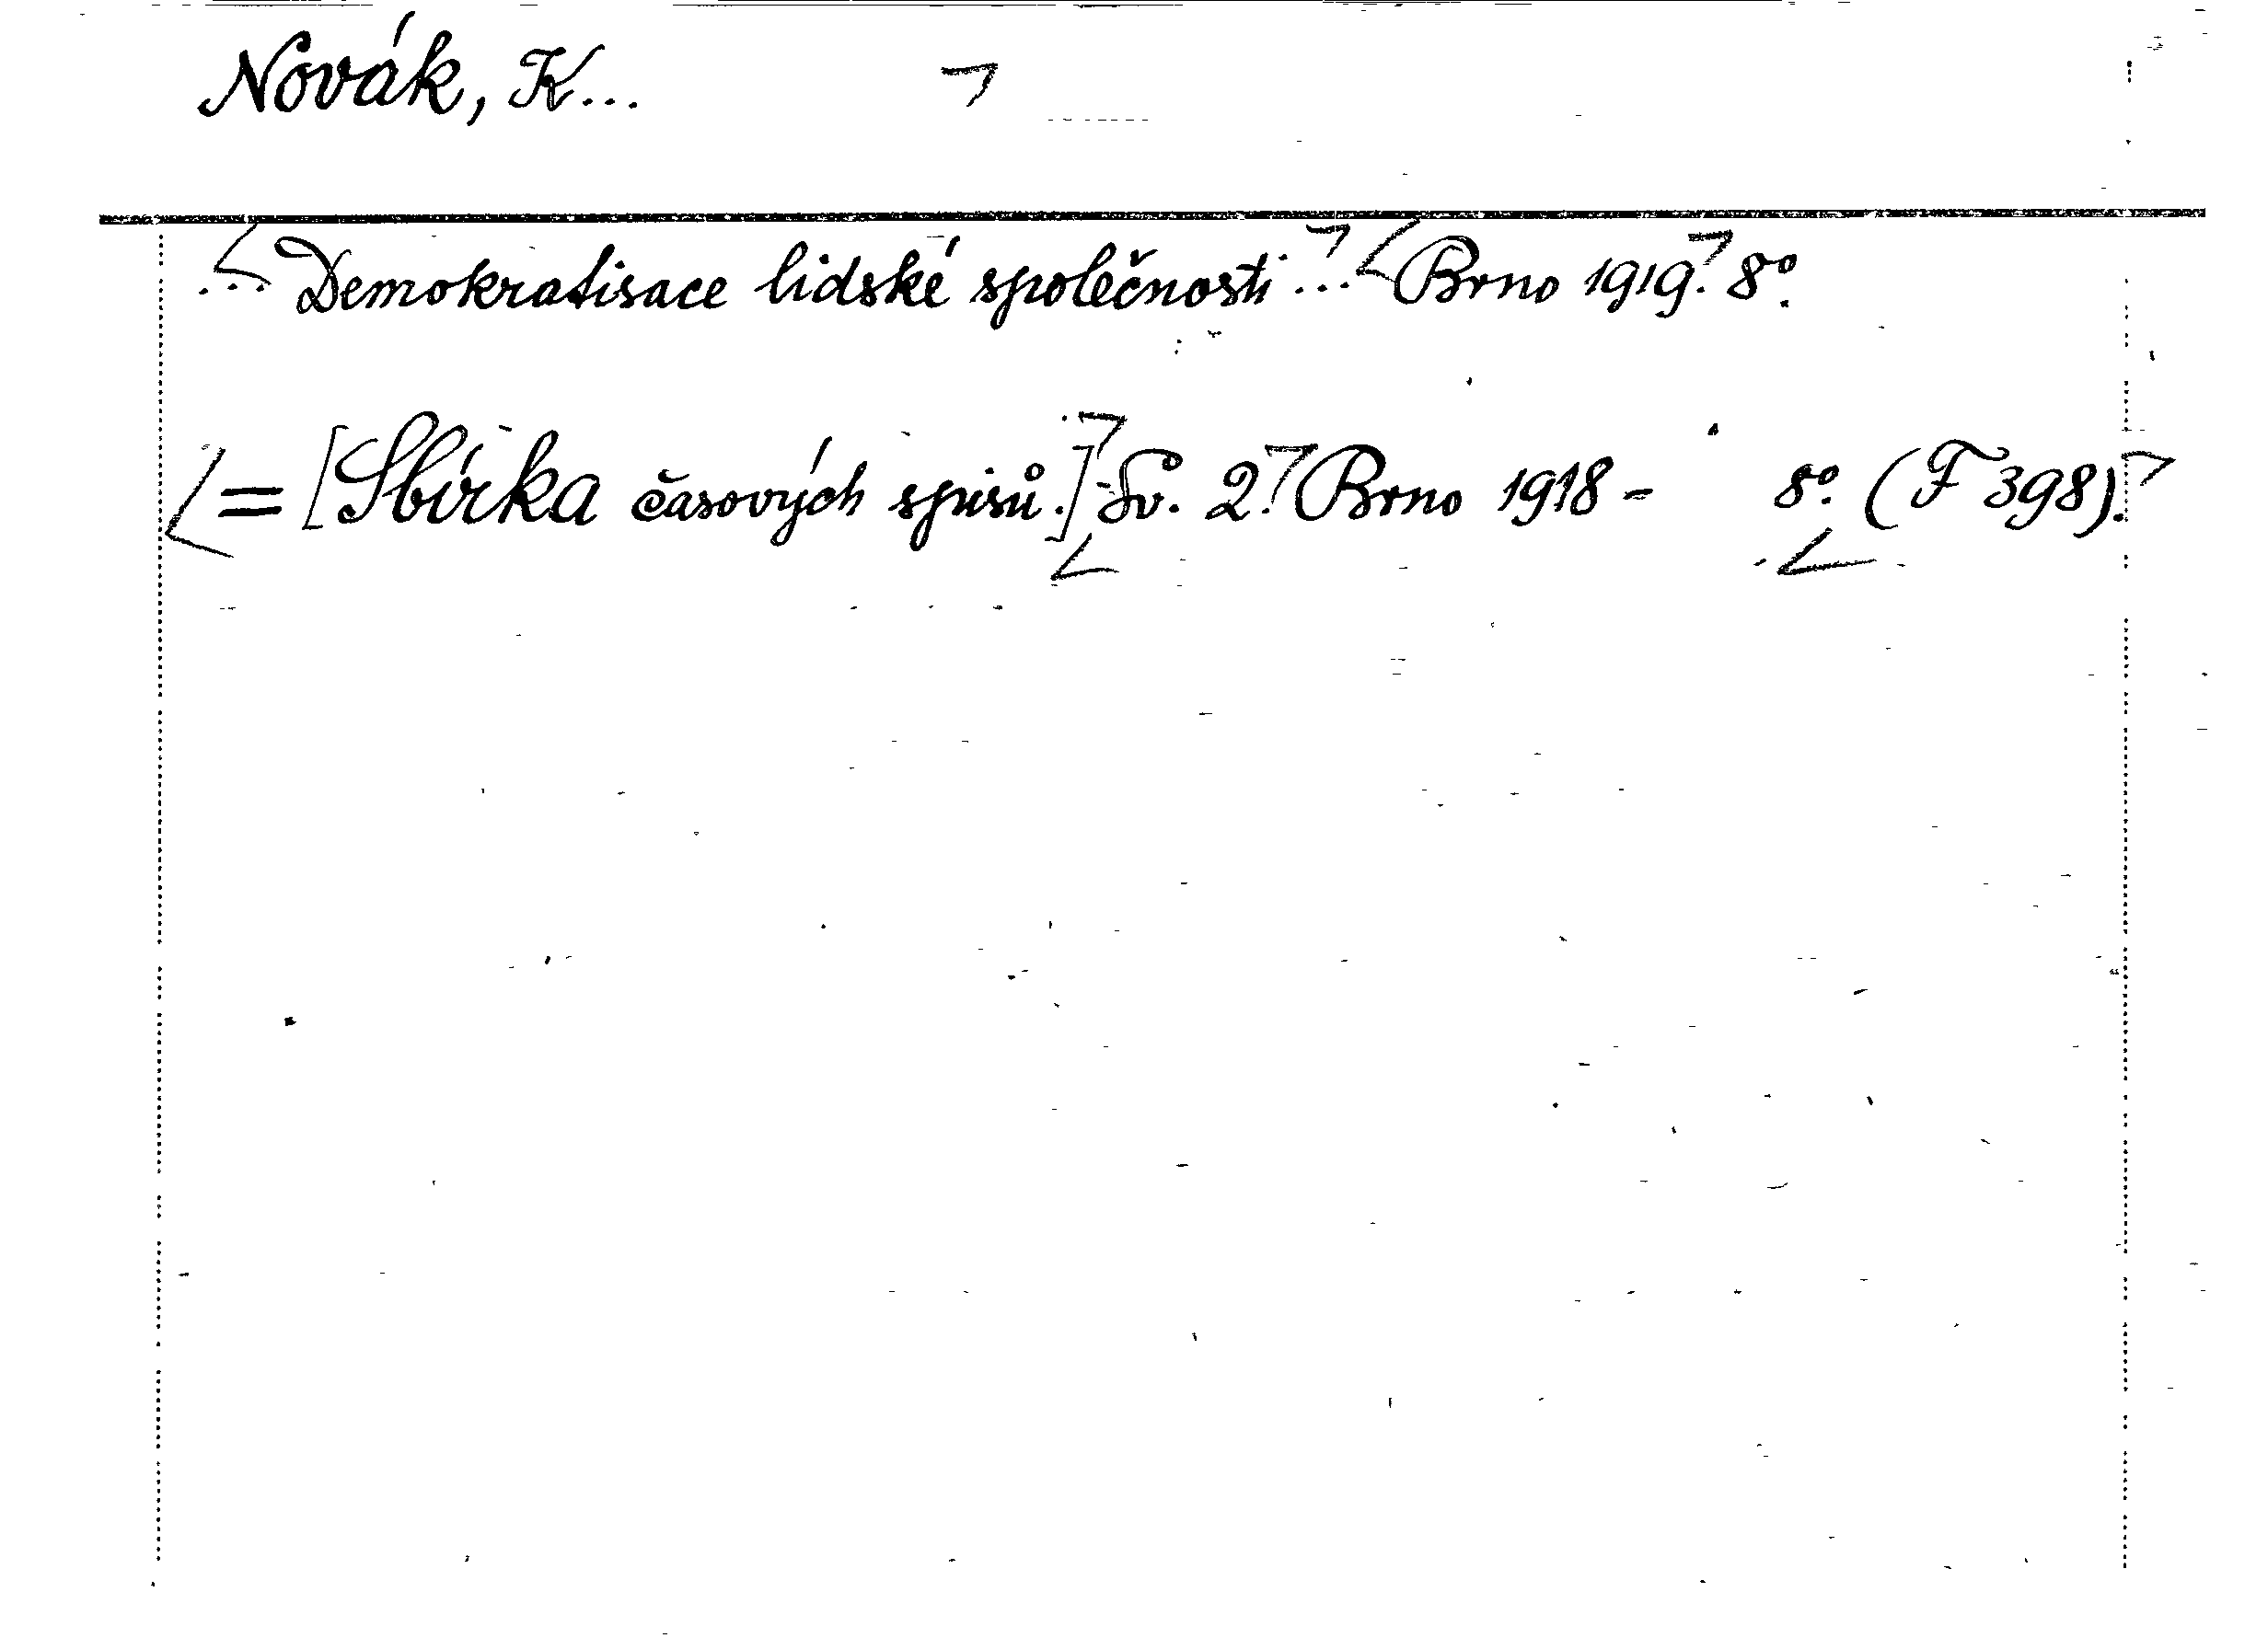 Novák, K...
... Demokratisace lidské společnosti ... Brno 1919. 8°.
= [Sbírka časových spisů.] Sv. 2. Brno 1918 - 8°. (F 398).